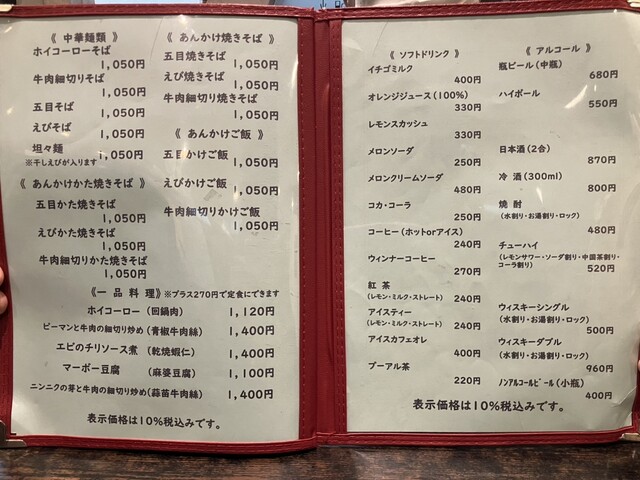 《 中華麺類 》
ホイコーローそば
1,050円
牛肉細切りそば
1,050円
五目そば
1,050円
えびそば
1,050円
坦々麺
※干しえびが入ります
1,050円
《 あんかけかた焼きそば 》
五目かた焼きそば
1,050円
えびかた焼きそば
1,050円
牛肉細切りかた焼きそば
1,050円
《 あんかけ焼きそば 》
五目焼きそば
1,050円
えび焼きそば
1,050円
牛肉細切り焼きそば
1,050円
《 あんかけご飯 》
五目かけご飯
1,050円
えびかけご飯
1,050円
牛肉細切りかけご飯
1,050円
《一 品 料 理》※プラス270円で定食にできます
ホイコーロー (回鍋肉) 1,120円
ピーマンと牛肉の細切り炒め (青椒牛肉絲) 1,400円
エビのチリソース煮 (乾焼蝦仁) 1,400円
マーボー豆腐 (麻婆豆腐) 1,100円
ニンニクの芽と牛肉の細切り炒め (蒜苗牛肉絲) 1,400円
表示価格は10%税込みです。
《 ソフトドリンク 》
イチゴミルク
400円
オレンジジュース (100%)
330円
レモンスカッシュ
330円
メロンソーダ
250円
メロンクリームソーダ
480円
コカ・コーラ
250円
コーヒー (ホットorアイス)
240円
ウィンナーコーヒー
270円
紅 茶
(レモン・ミルク・ストレート) 240円
アイスティー
(レモン・ミルク・ストレート) 240円
アイスカフェオレ
400円
プーアル茶
220円
《 アルコール 》
瓶ビール (中瓶)
680円
ハイボール
550円
日本酒 (2合)
870円
冷 酒 (300ml)
800円
焼 酎
(水割り・お湯割り・ロック)
480円
チューハイ
(レモンサワー・ソーダ割り・中国茶割り・
コーラ割り) 520円
ウィスキーシングル
(水割り・お湯割り・ロック)
500円
ウィスキーダブル
(水割り・お湯割り・ロック)
960円
ノンアルコールビール (小瓶)
400円
表示価格は10%税込みです。